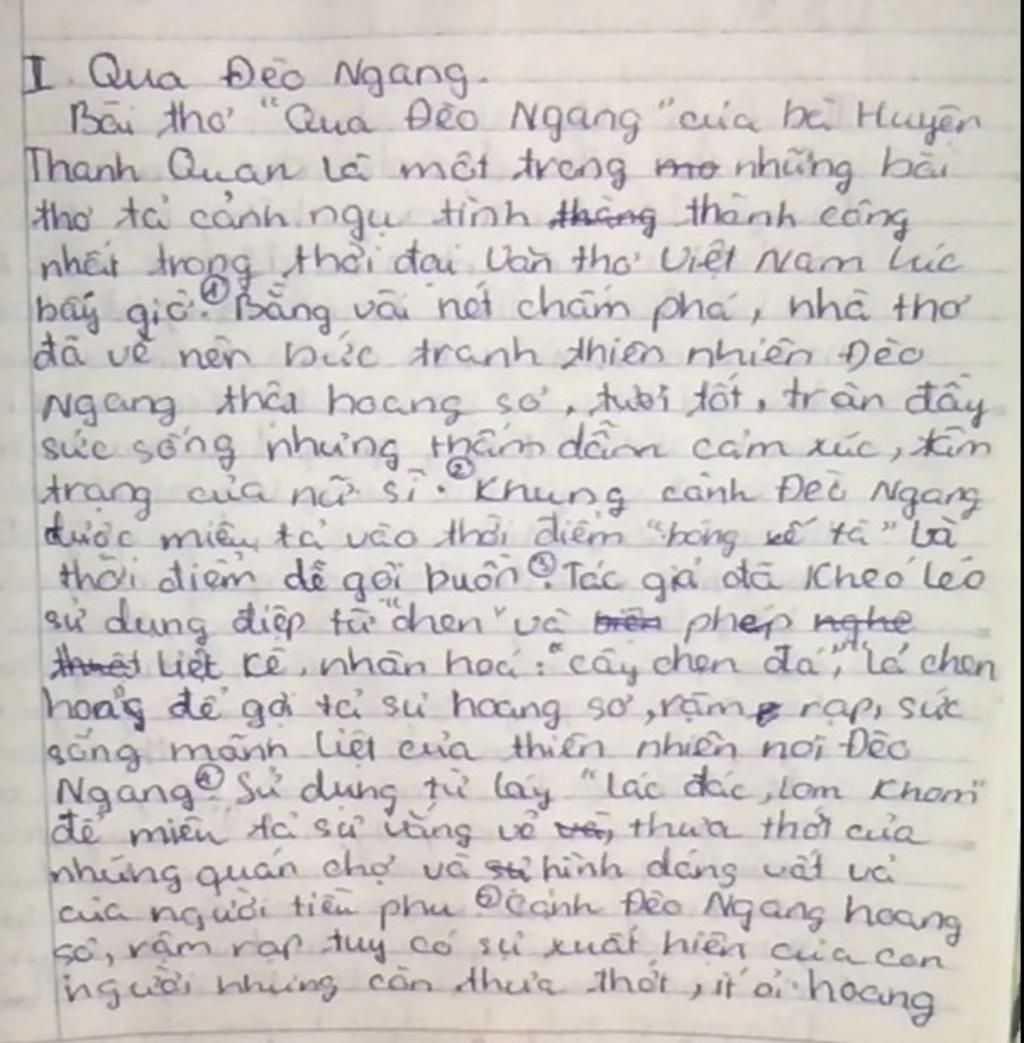 I. Qua Đèo Ngang.
Bài thơ "Qua Đèo Ngang" của bà Huyện
Thanh Quan là một trong mo những bài
thơ tả cảnh ngụ tình thàng thành công
nhất trong thời đại văn thơ Việt Nam lúc
bấy giờ. ① Bằng vài nét chấm phá, nhà thơ
đã vẽ nên bức tranh thiên nhiên Đèo
Ngang thật hoang sơ, tươi tốt, tràn đầy
sức sống nhưng thấm đẫm cảm xúc, tâm
trạng của nữ sĩ. ② Khung cảnh Đèo Ngang
được miêu tả vào thời điểm "bóng xế tà" là
thời điểm dễ gợi buồn ③. Tác giả đã khéo léo
sử dụng điệp từ "chen" và biện phép nghe
thuật liệt kê, nhân hoá: "cây chen đá", "lá chen
hoa" để gợi tả sự hoang sơ, rậm rạp, sức
sống mãnh liệt của thiên nhiên nơi Đèo
Ngang ④. Sử dụng từ láy "lác đác, lom khom"
để miêu tả sự vắng vẻ và, thưa thớt của
những quán chợ và sự hình dáng vất vả
của người tiều phu ⑤. Cảnh Đèo Ngang hoang
sơ, rậm rạp tuy có sự xuất hiện của con
người nhưng còn thưa thớt, ít ỏi hoang